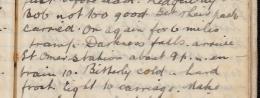 Bob not too good. But their pack
carried. On again for 6 miles
tramp. Darkness falls. arrive
St Omer station about 9 p. en-
train 10. Bitterly cold - hard
frost. Eight to carriage. Make